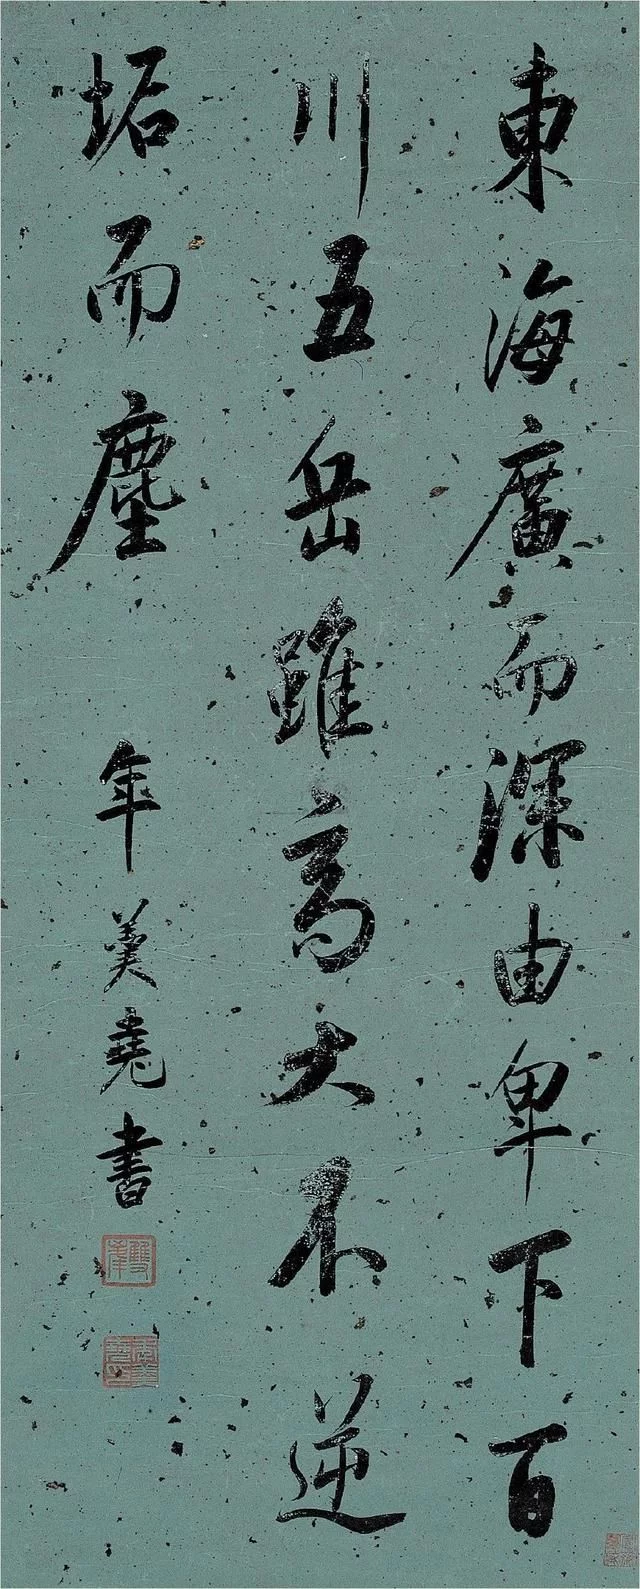 東海廣而深由卑下百
川五岳雖高大不逆
垢而塵
年羹堯書
雙峯
年羹堯印